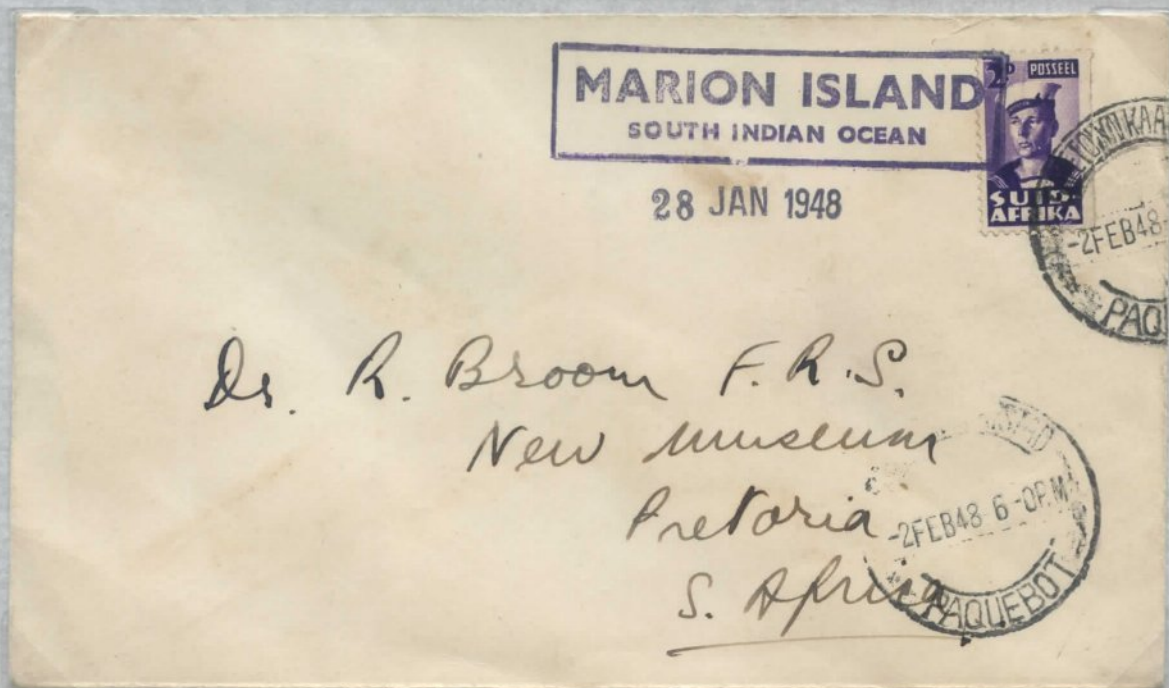 MARION ISLAND
SOUTH INDIAN OCEAN
28 JAN 1948
2D POSSEEL
SUID-
AFRIKA
-2FEB48
PAQUE
Dr. R. Broom F.R.S.
New Museum
Pretoria
S. Africa
-2FEB48 6-0PM
PAQUEBOT